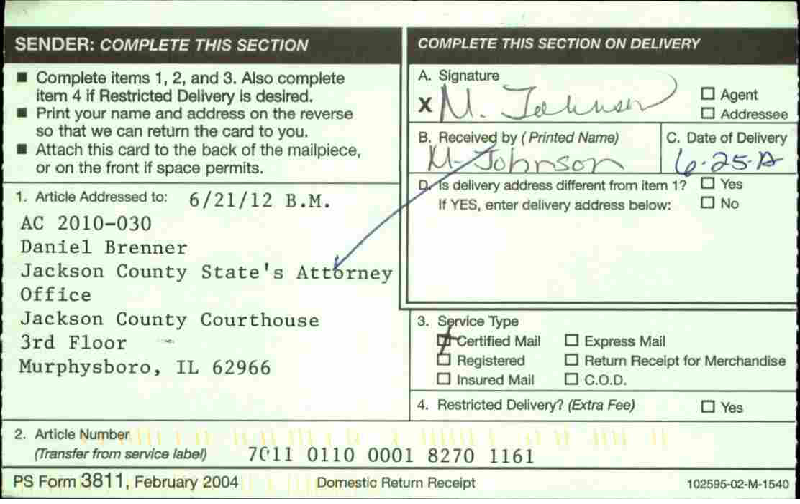 SENDER: COMPLETE THIS SECTION
■ Complete items 1, 2, and 3. Also complete
item 4 if Restricted Delivery is desired.
■ Print your name and address on the reverse
so that we can return the card to you.
■ Attach this card to the back of the mailpiece,
or on the front if space permits.
1. Article Addressed to: 6/21/12 B.M.
AC 2010-030
Daniel Brenner
Jackson County State's Attorney
Office
Jackson County Courthouse
3rd Floor
Murphysboro, IL 62966
COMPLETE THIS SECTION ON DELIVERY
A. Signature
X M. Johnson
☐ Agent
☐ Addressee
B. Received by (Printed Name)
M. Johnson
C. Date of Delivery
6-25-12
D. Is delivery address different from item 1? ☐ Yes
If YES, enter delivery address below: ☐ No
3. Service Type
Certified Mail ☐ Express Mail
☐ Registered ☐ Return Receipt for Merchandise
☐ Insured Mail ☐ C.O.D.
4. Restricted Delivery? (Extra Fee) ☐ Yes
2. Article Number
(Transfer from service label) 7011 0110 0001 8270 1161
PS Form 3811, February 2004 Domestic Return Receipt 102595-02-M-1540